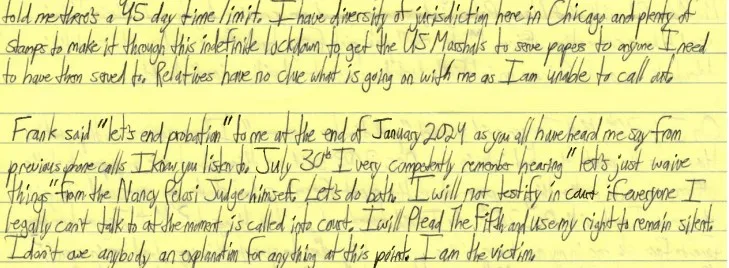 told me there's a 45 day time limit. I have diversity of jurisdiction here in Chicago and plenty of
stamps to make it through this indefinite lockdown to get the US Marshals to serve papers to anyone I need
to have them served to. Relatives have no clue what is going on with me as I am unable to call out.
Frank said "let's end probation" to me at the end of January 2024 as you all have heard me say from
previous phone calls I know you listen to. July 30th I very competently remember hearing "let's just waive
things" from the Nancy Pelosi Judge himself. Let's do both. I will not testify in court if everyone I
legally can't talk to at the moment is called into court. I will Plead The Fifth and use my right to remain silent.
I don't owe anybody an explanation for anything at this point. I am the victim.